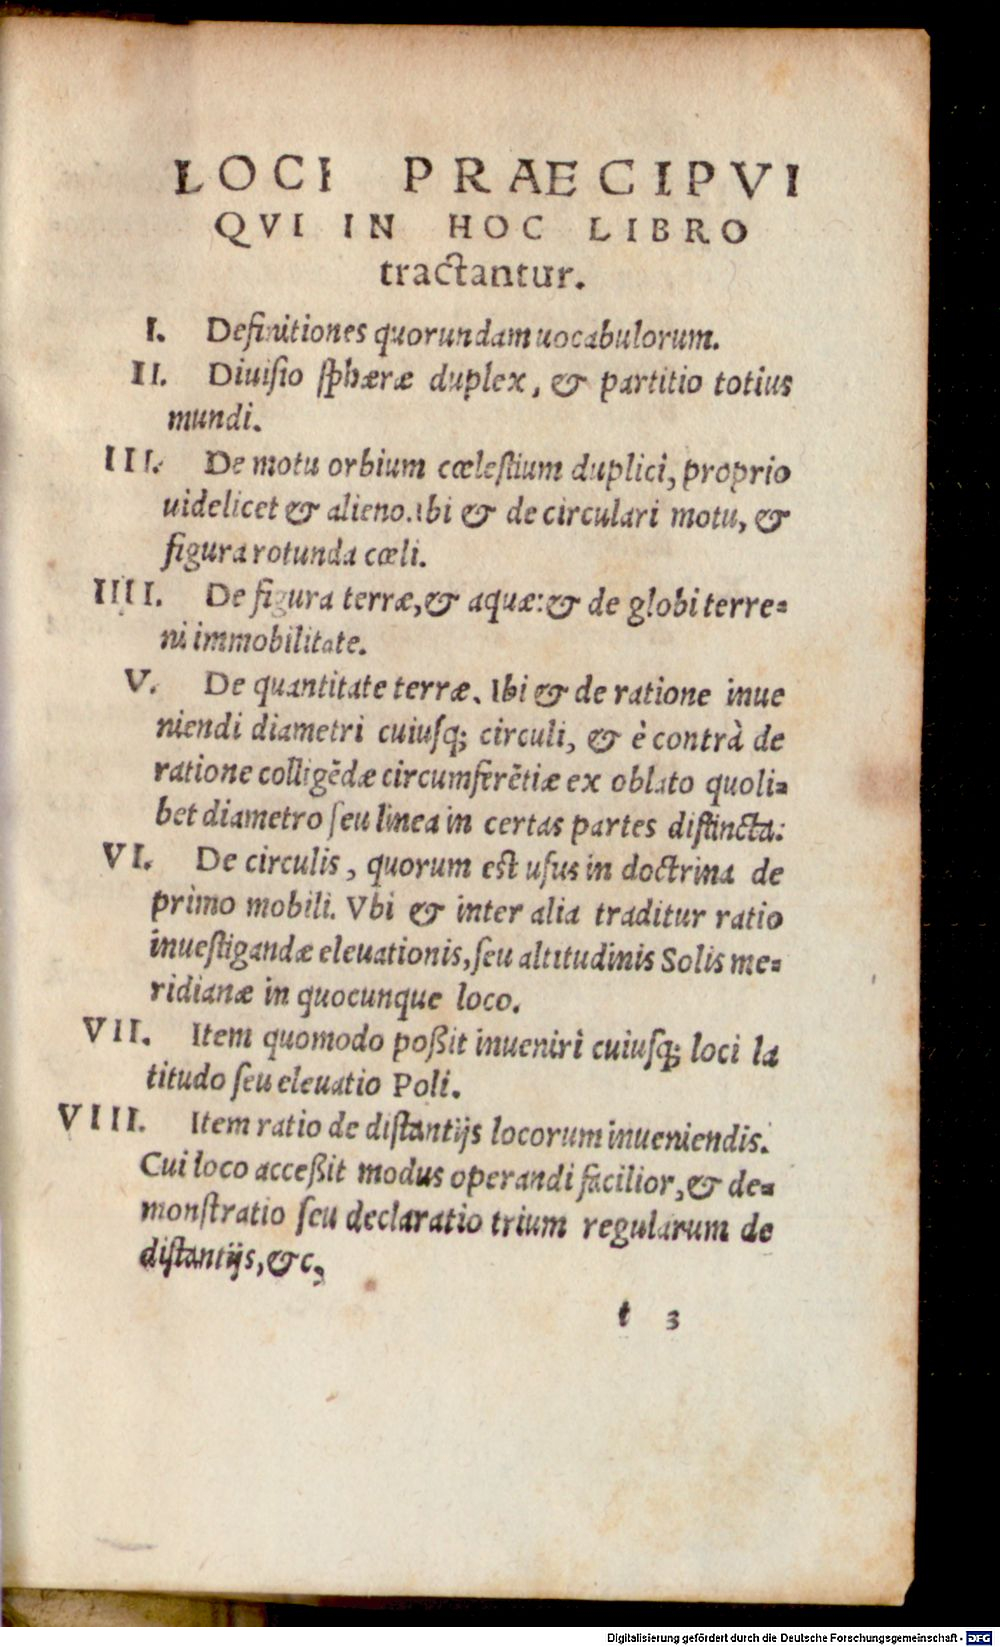 LOCI PRAECIPVI
QVI IN HOC LIBRO
tractantur.
I. Definitiones quorundam uocabulorum.
II. Diuiſio ſphæræ duplex, & partitio totius
mundi.
III. De motu orbium cœleſtium duplici, proprio
uidelicet & alieno. Ibi & de circulari motu, &
figura rotunda cœli.
IIII. De figura terræ, & aquæ: & de globi terre=
ni immobilitate.
V. De quantitate terræ. Ibi & de ratione inue
niendi diametri cuiuſq; circuli, & è contrà de
ratione colligẽdæ circumferẽtiæ ex oblato quoli=
bet diametro ſeu linea in certas partes diſtincta.
VI. De circulis, quorum est uſus in doctrina de
primo mobili. Vbi & inter alia traditur ratio
inueſtigandæ eleuationis, ſeu altitudinis Solis me=
ridianæ in quocunque loco.
VII. Item quomodo poßit inueniri cuiuſq; loci la
titudo ſeu eleuatio Poli.
VIII. Item ratio de diſtantijs locorum inueniendis.
Cui loco acceßit modus operandi facilior, & de=
monſtratio ſeu declaratio trium regularum de
diſtantijs, &c,
t 3
Digitalisierung gefördert durch die Deutsche Forschungsgemeinschaft - DFG